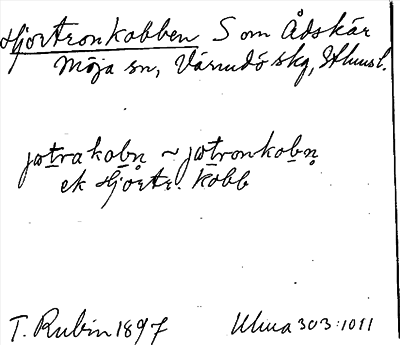 Hjortronkobben S om Ådskär
Möja sn, Värmdö skg, Sthmsl.
jotrakobn ~ jotronkobn
ek Hjortr. kobb
T. Rubin 1897 Ulma 303:1011